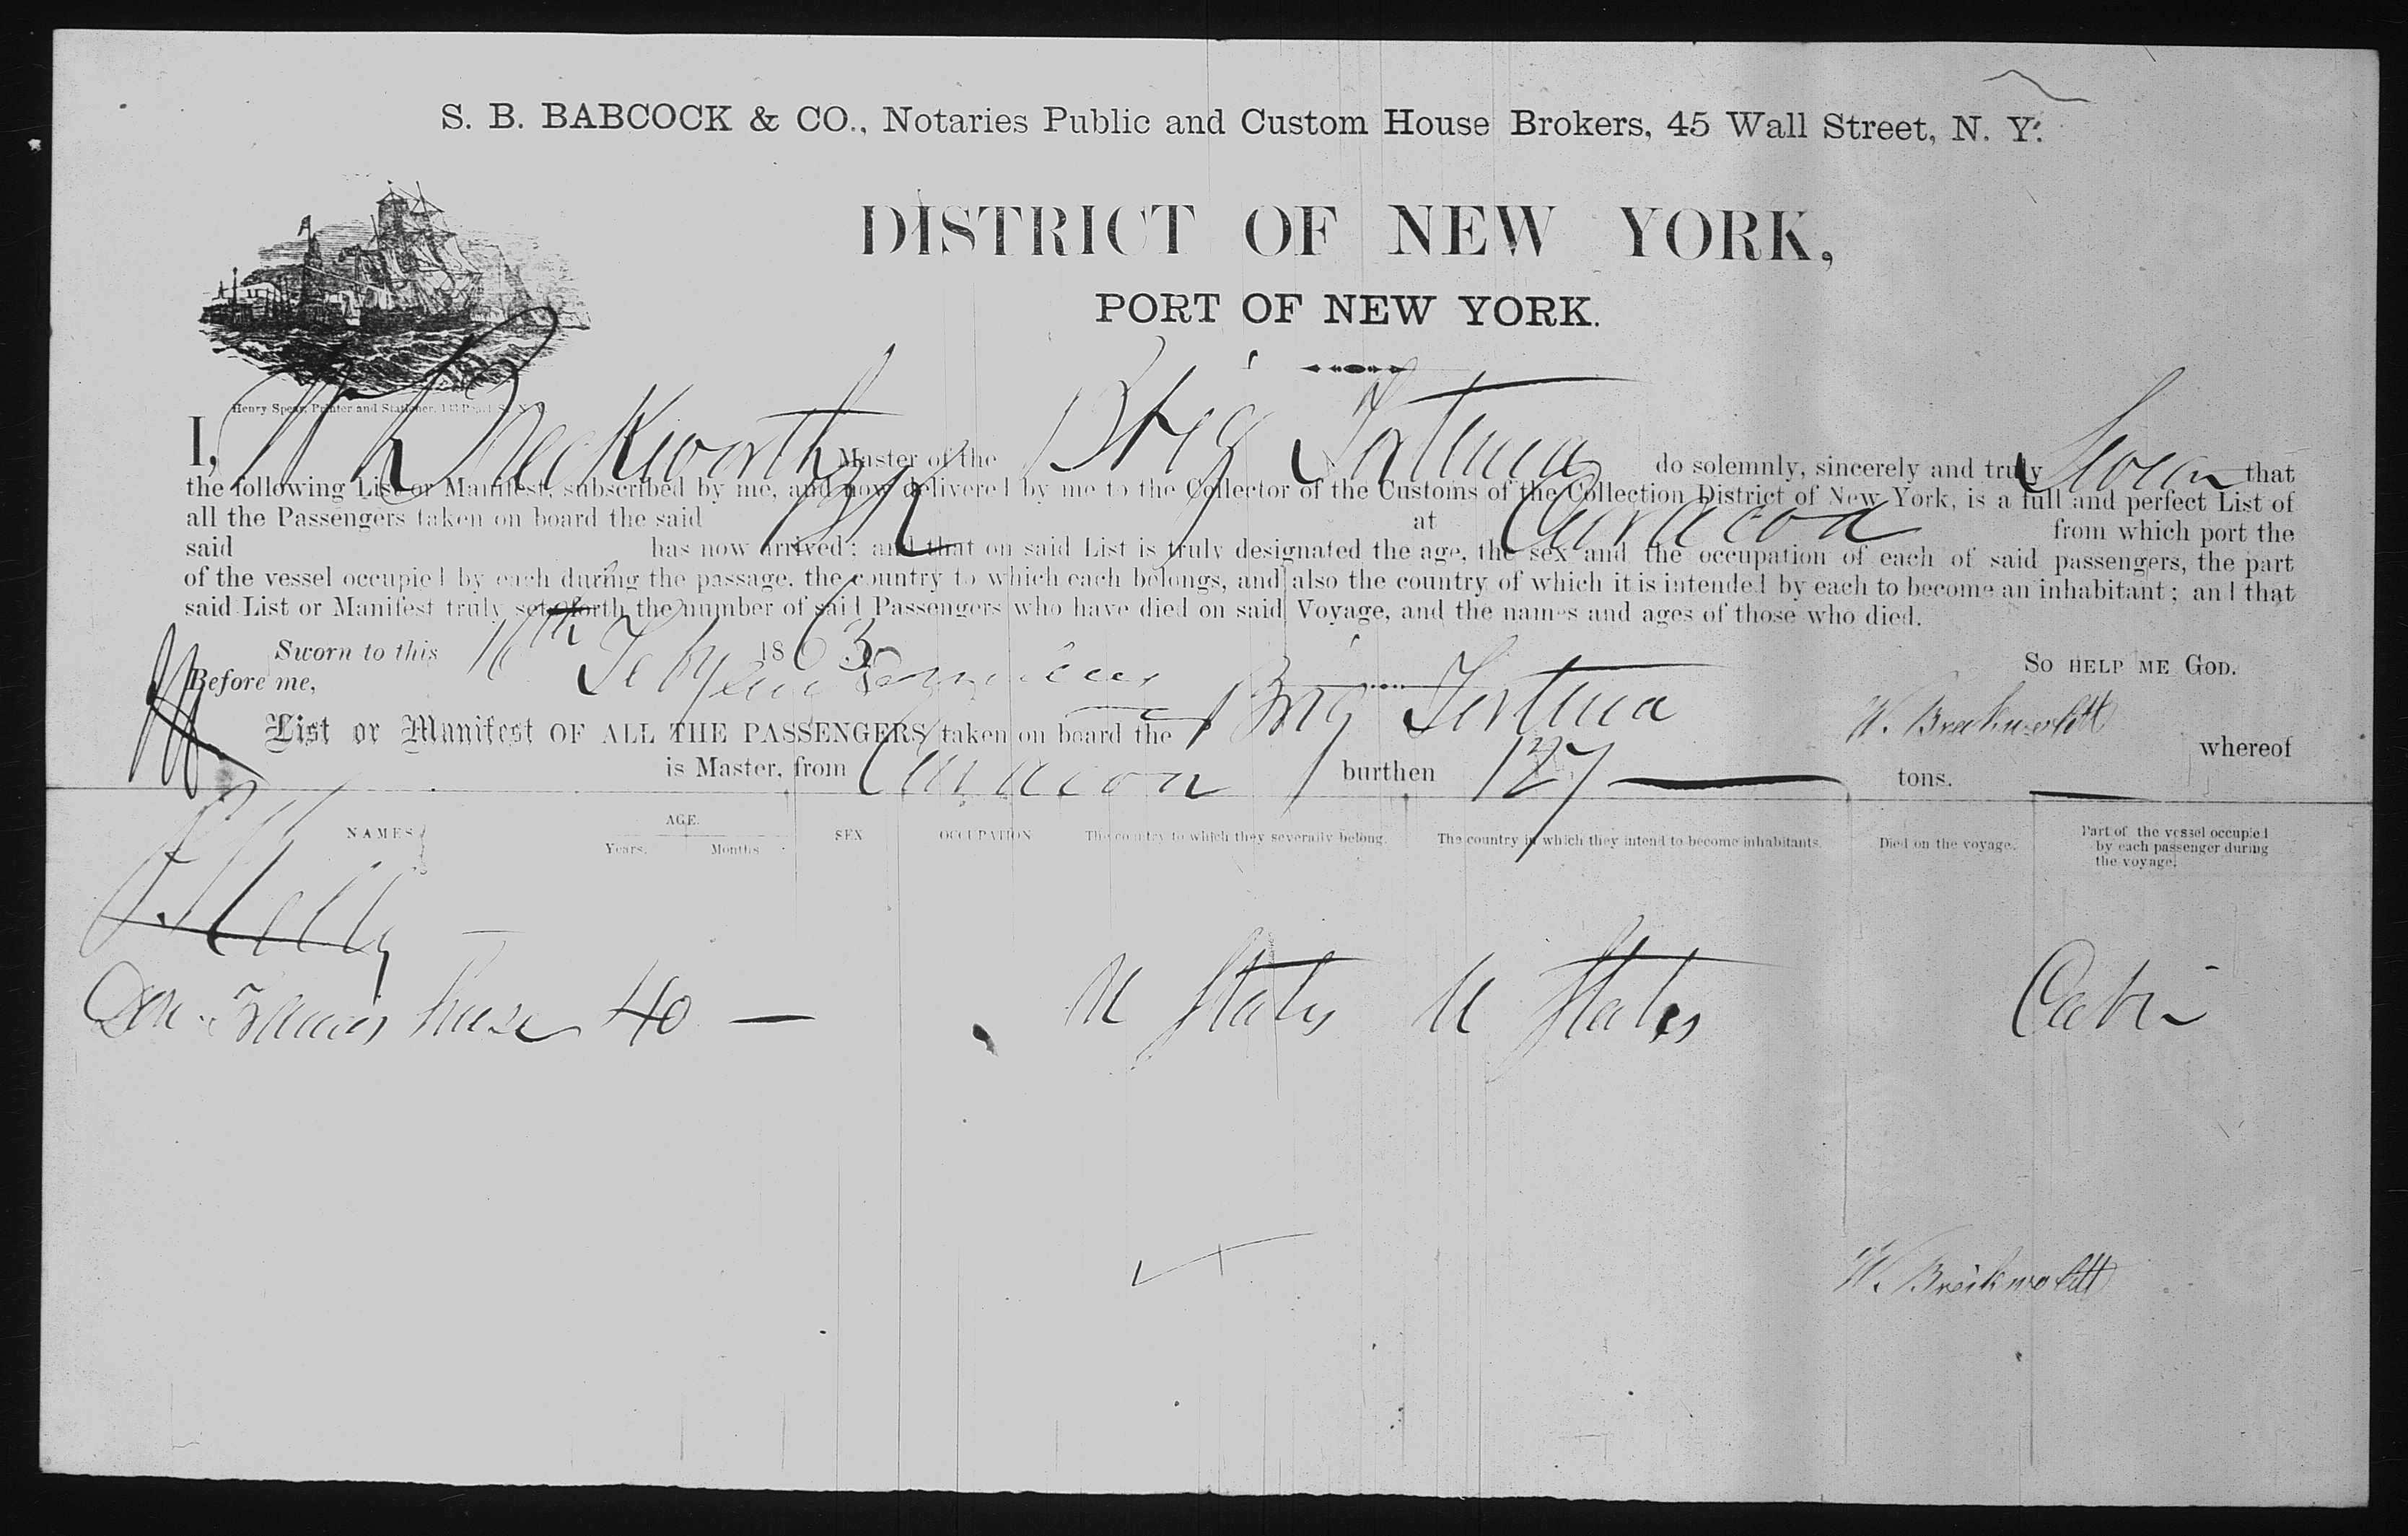 S. B. BABCOCK & CO., Notaries Public and Custom House Brokers, 45 Wall Street, N. Y.
DISTRICT OF NEW YORK,
PORT OF NEW YORK.
Henry Spear, Printer and Stationer, 133 Pearl St. N. Y.
I, W Breckworth Master of the Brig Fortuna do solemnly, sincerely and truly Swear that
the following List or Manifest, subscribed by me, and now delivered by me to the Collector of the Customs of the Collection District of New York, is a full and perfect List of
all the Passengers taken on board the said Brig at Curacoa from which port the
said has now arrived; and that on said List is truly designated the age, the sex and the occupation of each of said passengers, the part
of the vessel occupied by each during the passage, the country to which each belongs, and also the country of which it is intended by each to become an inhabitant; and that
said List or Manifest truly sets forth the number of said Passengers who have died on said Voyage, and the names and ages of those who died.
Sworn to this 16th Feby 1863 SO HELP ME GOD.
Before me,
W. Breckwoldt
List or Manifest OF ALL THE PASSENGERS taken on board the Brig Fortuna whereof
is Master, from Curacoa burthen 127 tons.
NAMES AGE. Years. Months SEX OCCUPATION The country to which they severally belong. The country in which they intend to become inhabitants. Died on the voyage. Part of the vessel occupied by each passenger during the voyage.
40 — U States U States Cabin
W. Breckwoldt